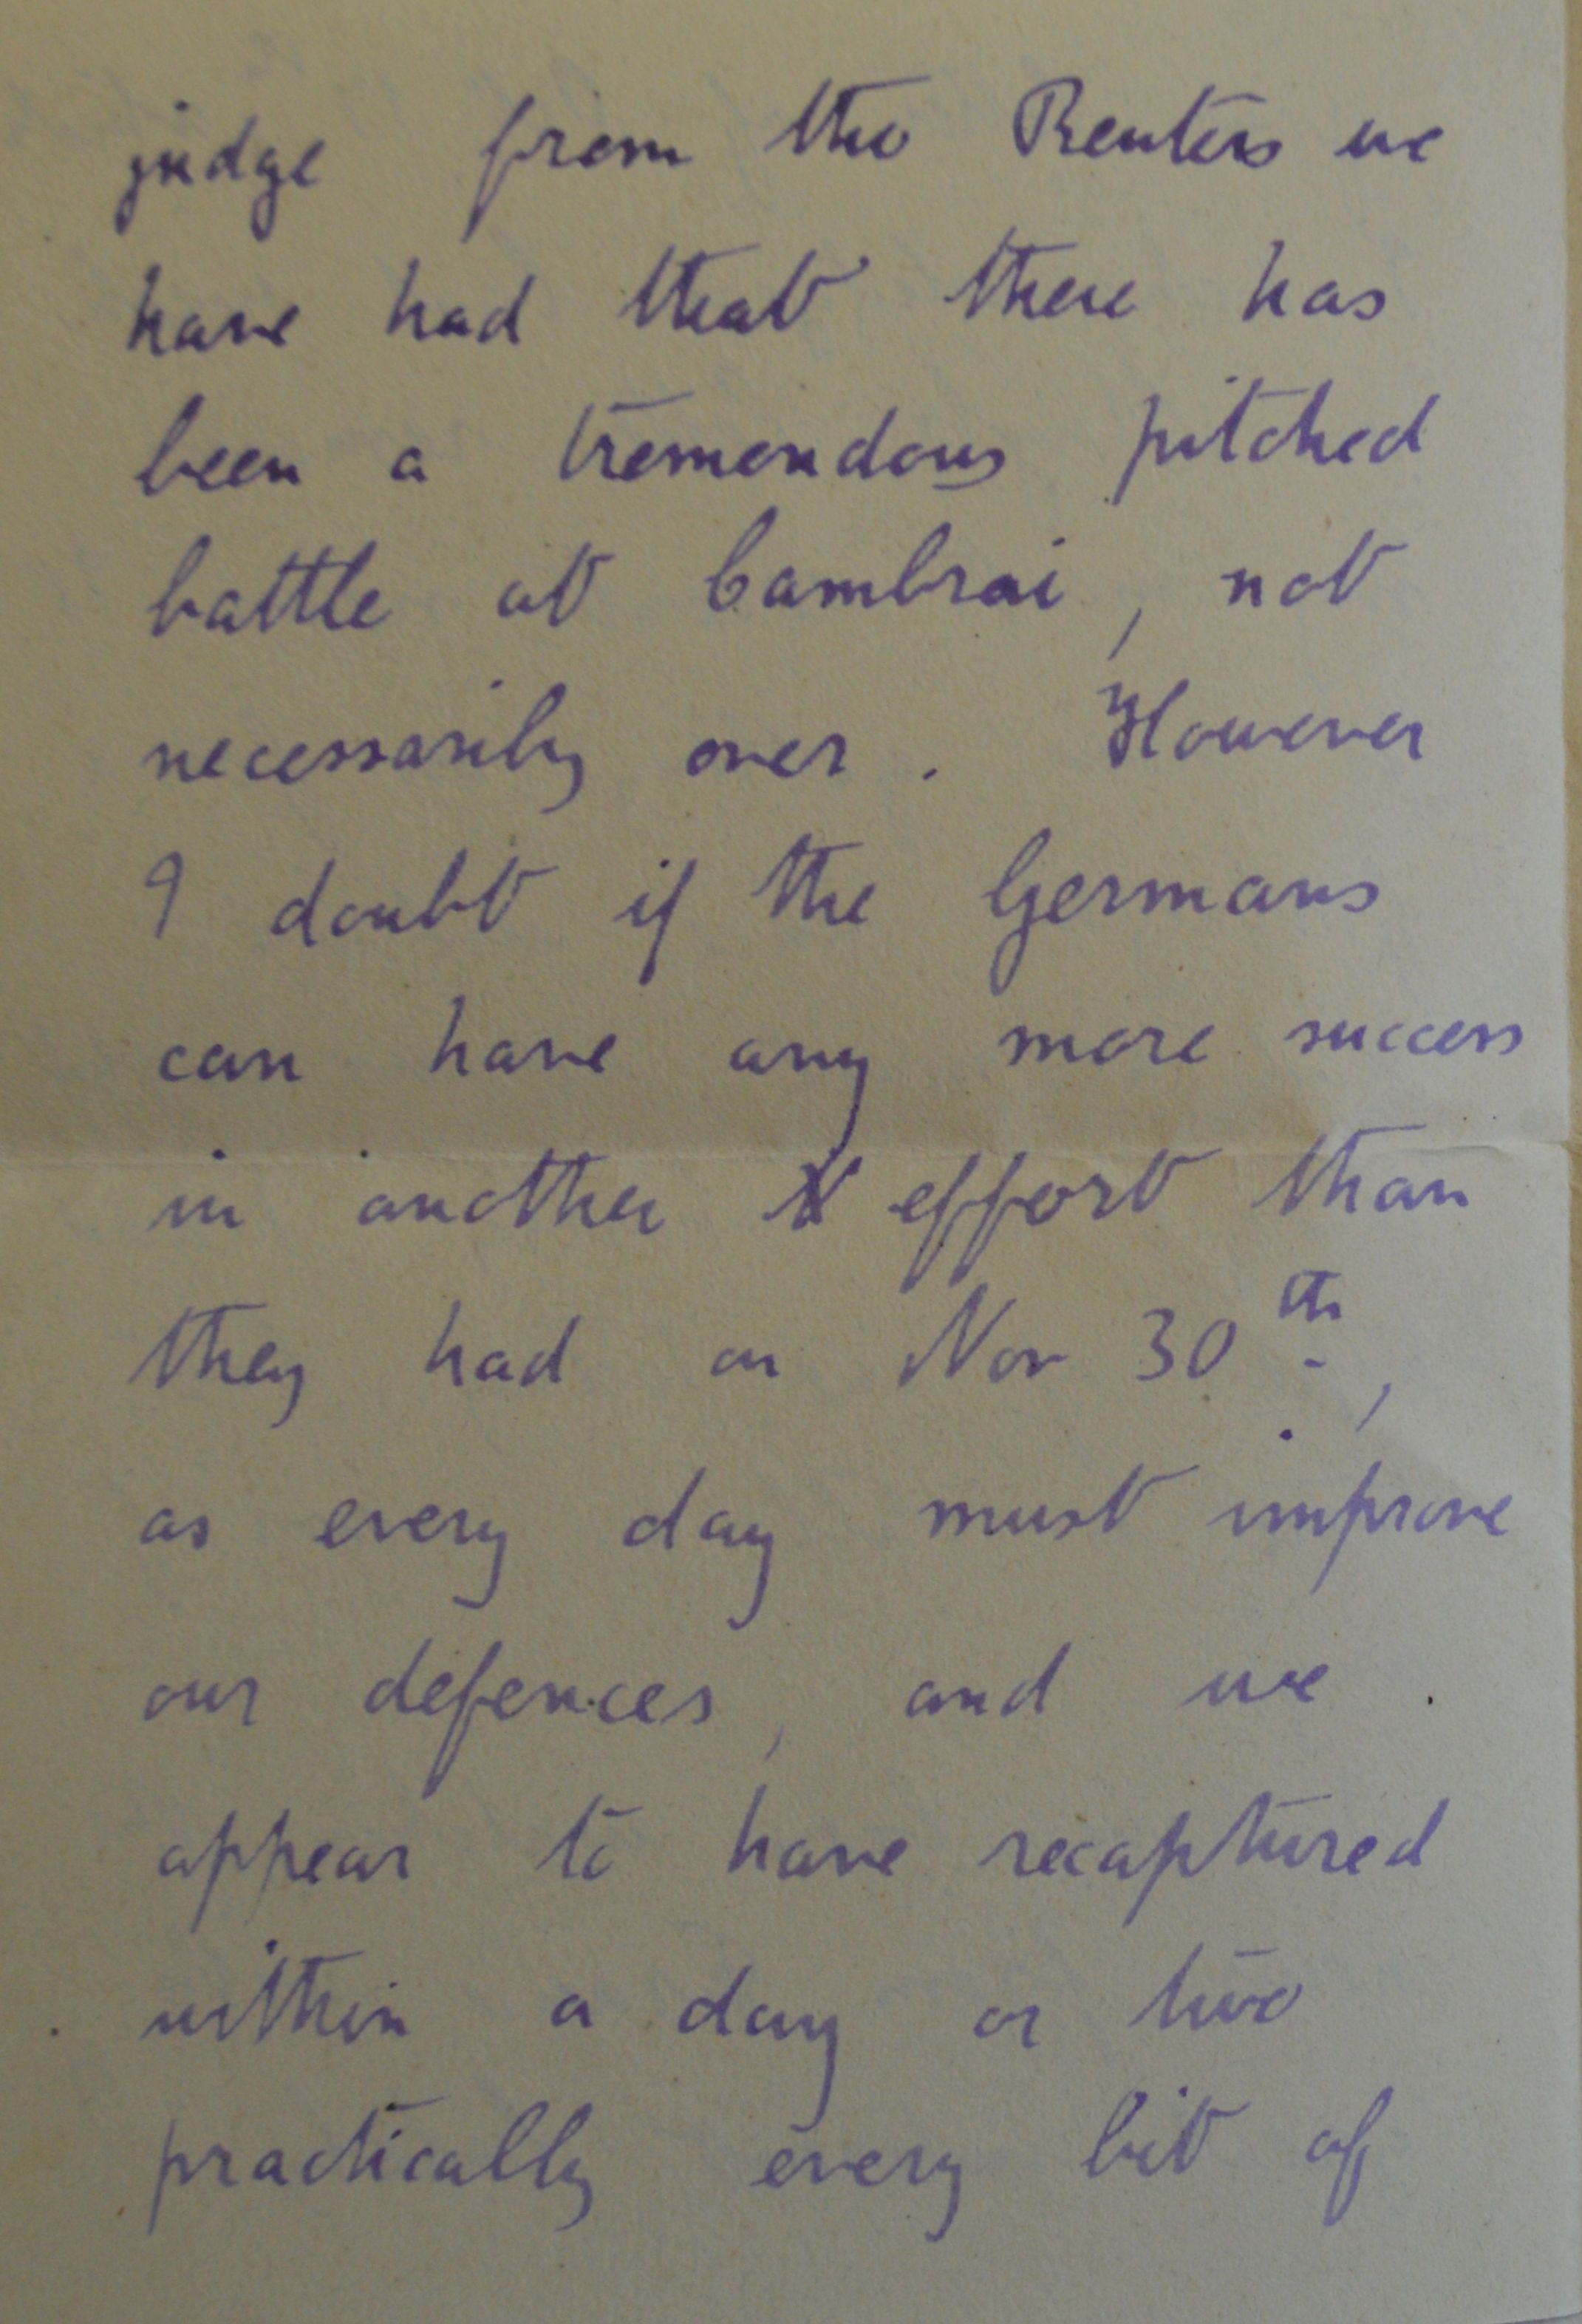 judge from the Reuters we
have had that there has
been a tremendous pitched
battle at Cambrai, not
necessarily over. However
I doubt if the Germans
can have any more success
in another effort than
they had on Nov 30th,
as every day must improve
our defences, and we
appear to have recaptured
within a day or two
practically every bit of